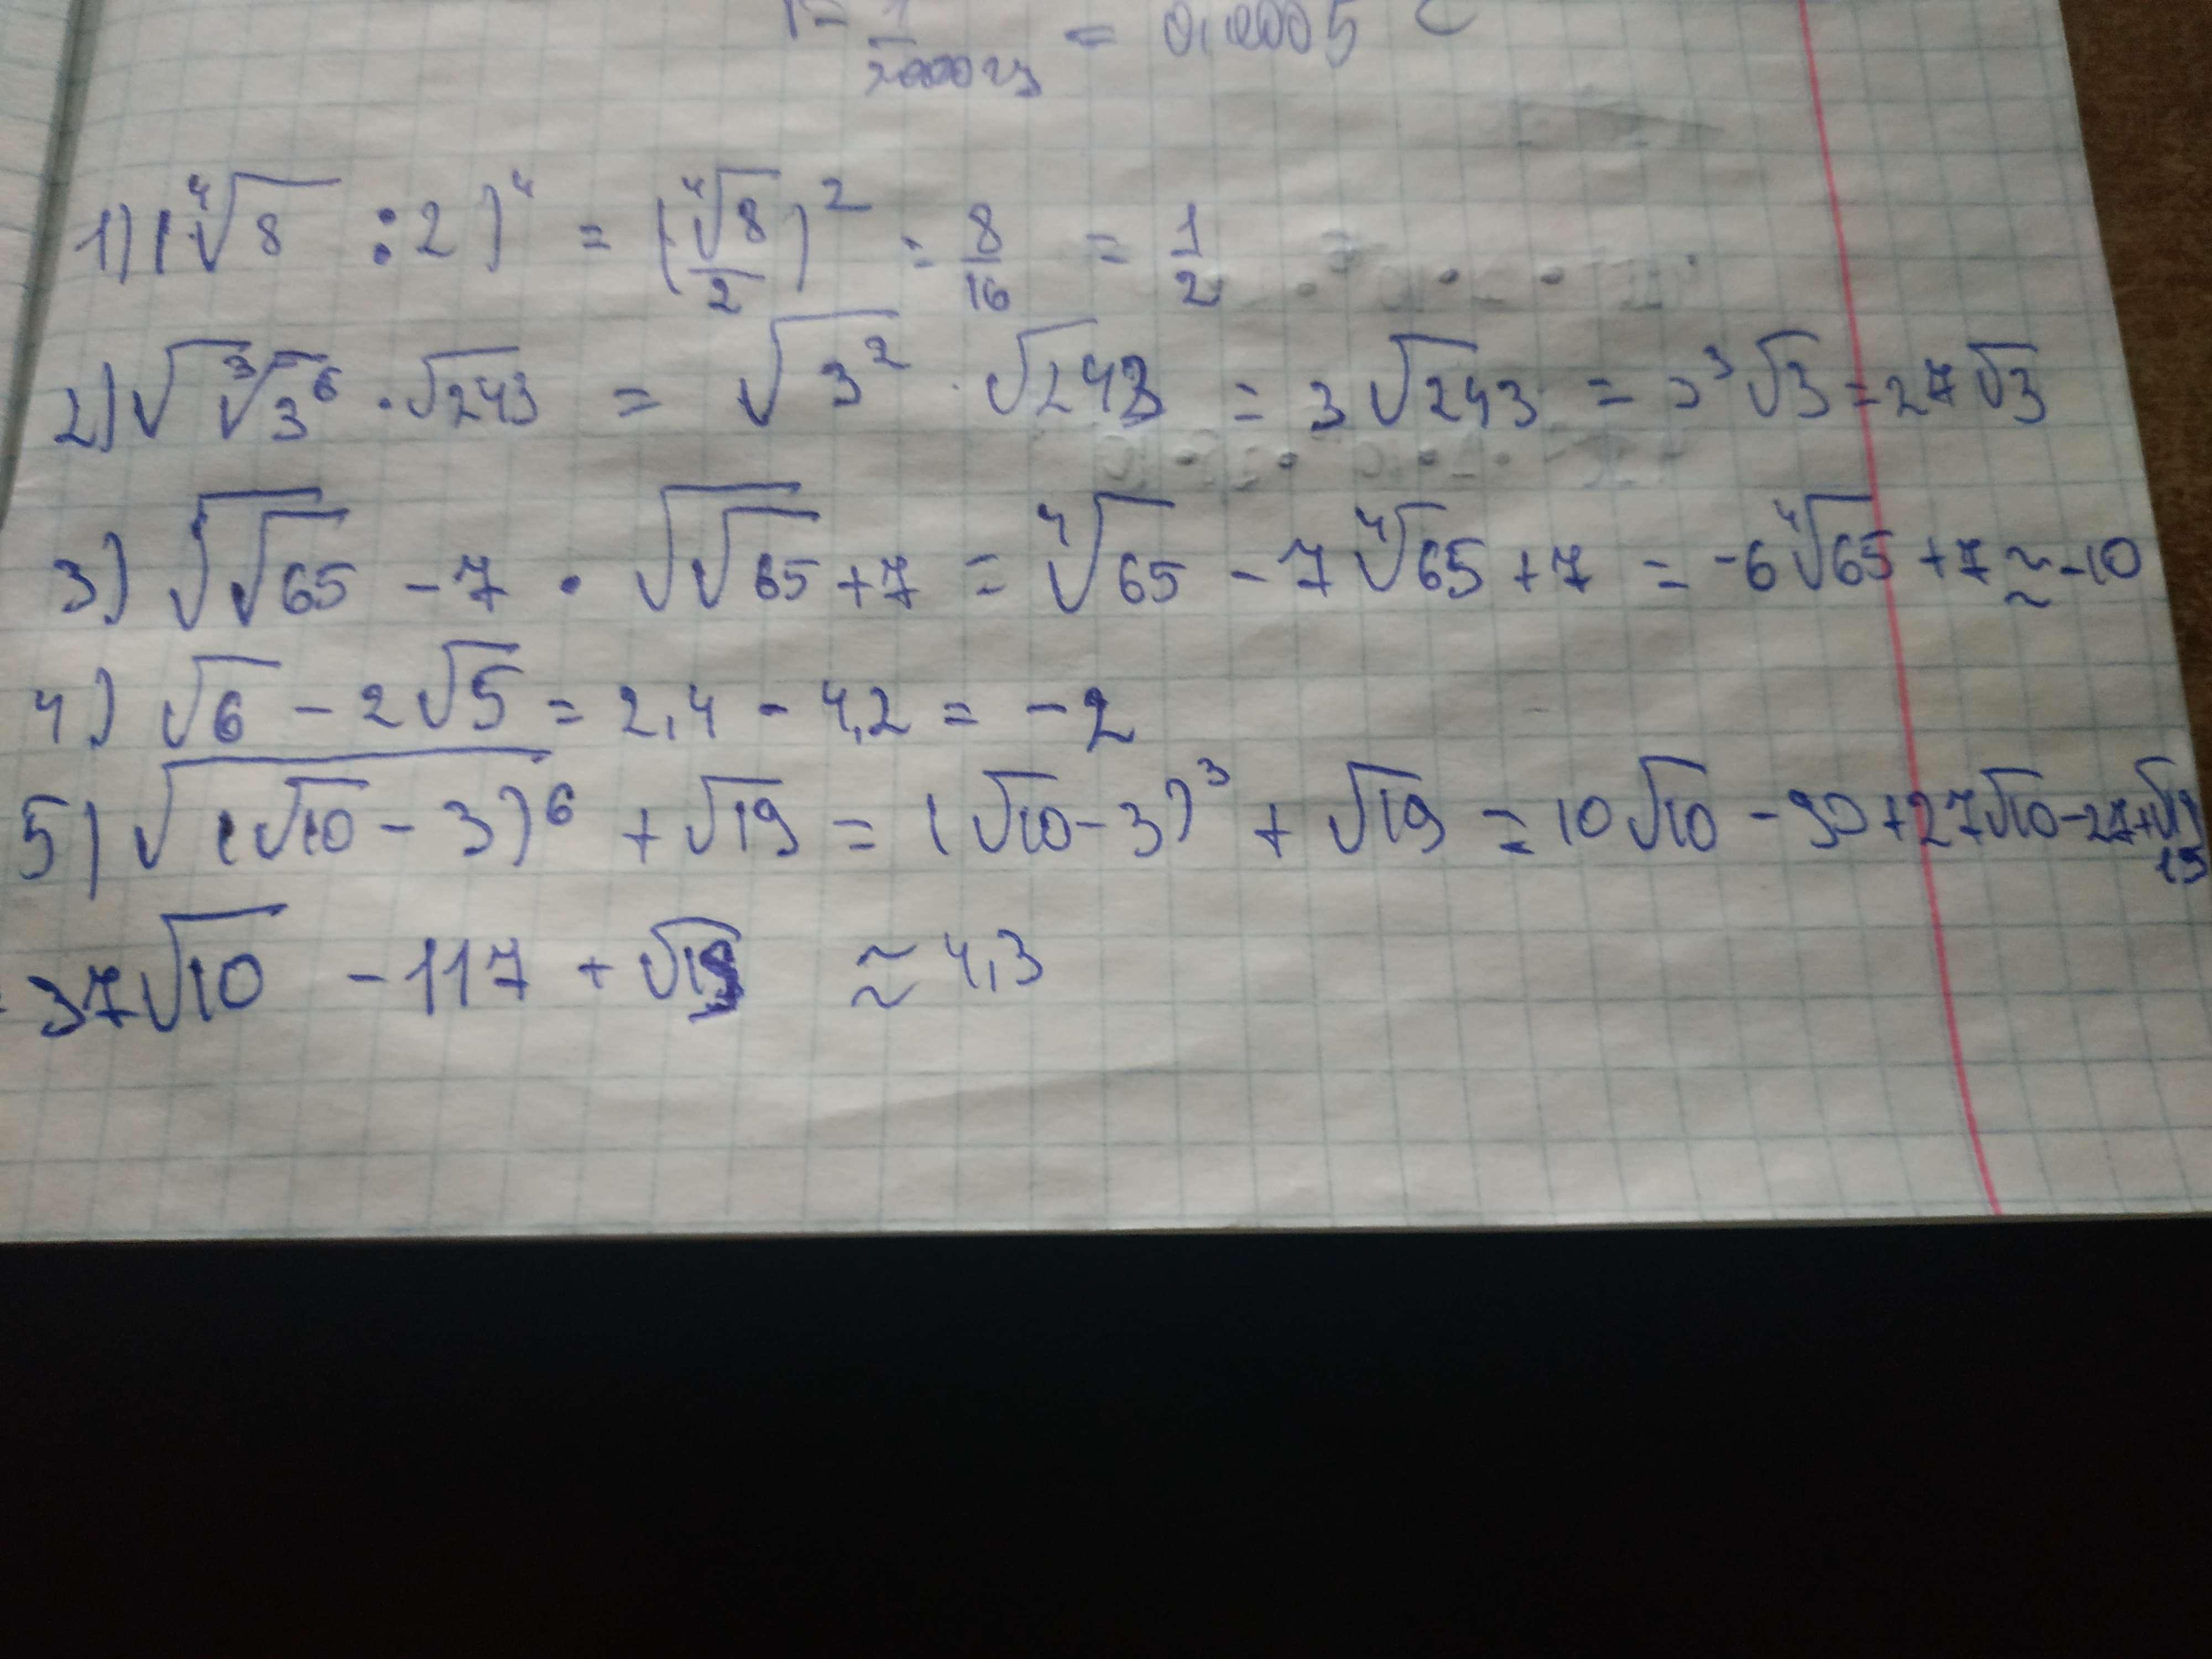 = 1/2000 Гц = 0,0005 С
1) (⁴√8 : 2)⁴ = (⁴√8/2)² = 8/16 = 1/2
2) √³√3⁶ · √243 = √3² · √243 = 3√243 = 3³√3 = 27√3
3) √√65 - 7 · √√65 + 7 = ⁴√65 - 7⁴√65 + 7 = -6⁴√65 + 7 ≈ -10
4) √6 - 2√5 = 2,4 - 4,2 = -2
5) √(√10 - 3)⁶ + √19 = (√10 - 3)³ + √19 = 10√10 - 90 + 27√10 - 27 + √19
37√10 - 117 + √19 ≈ 4,3